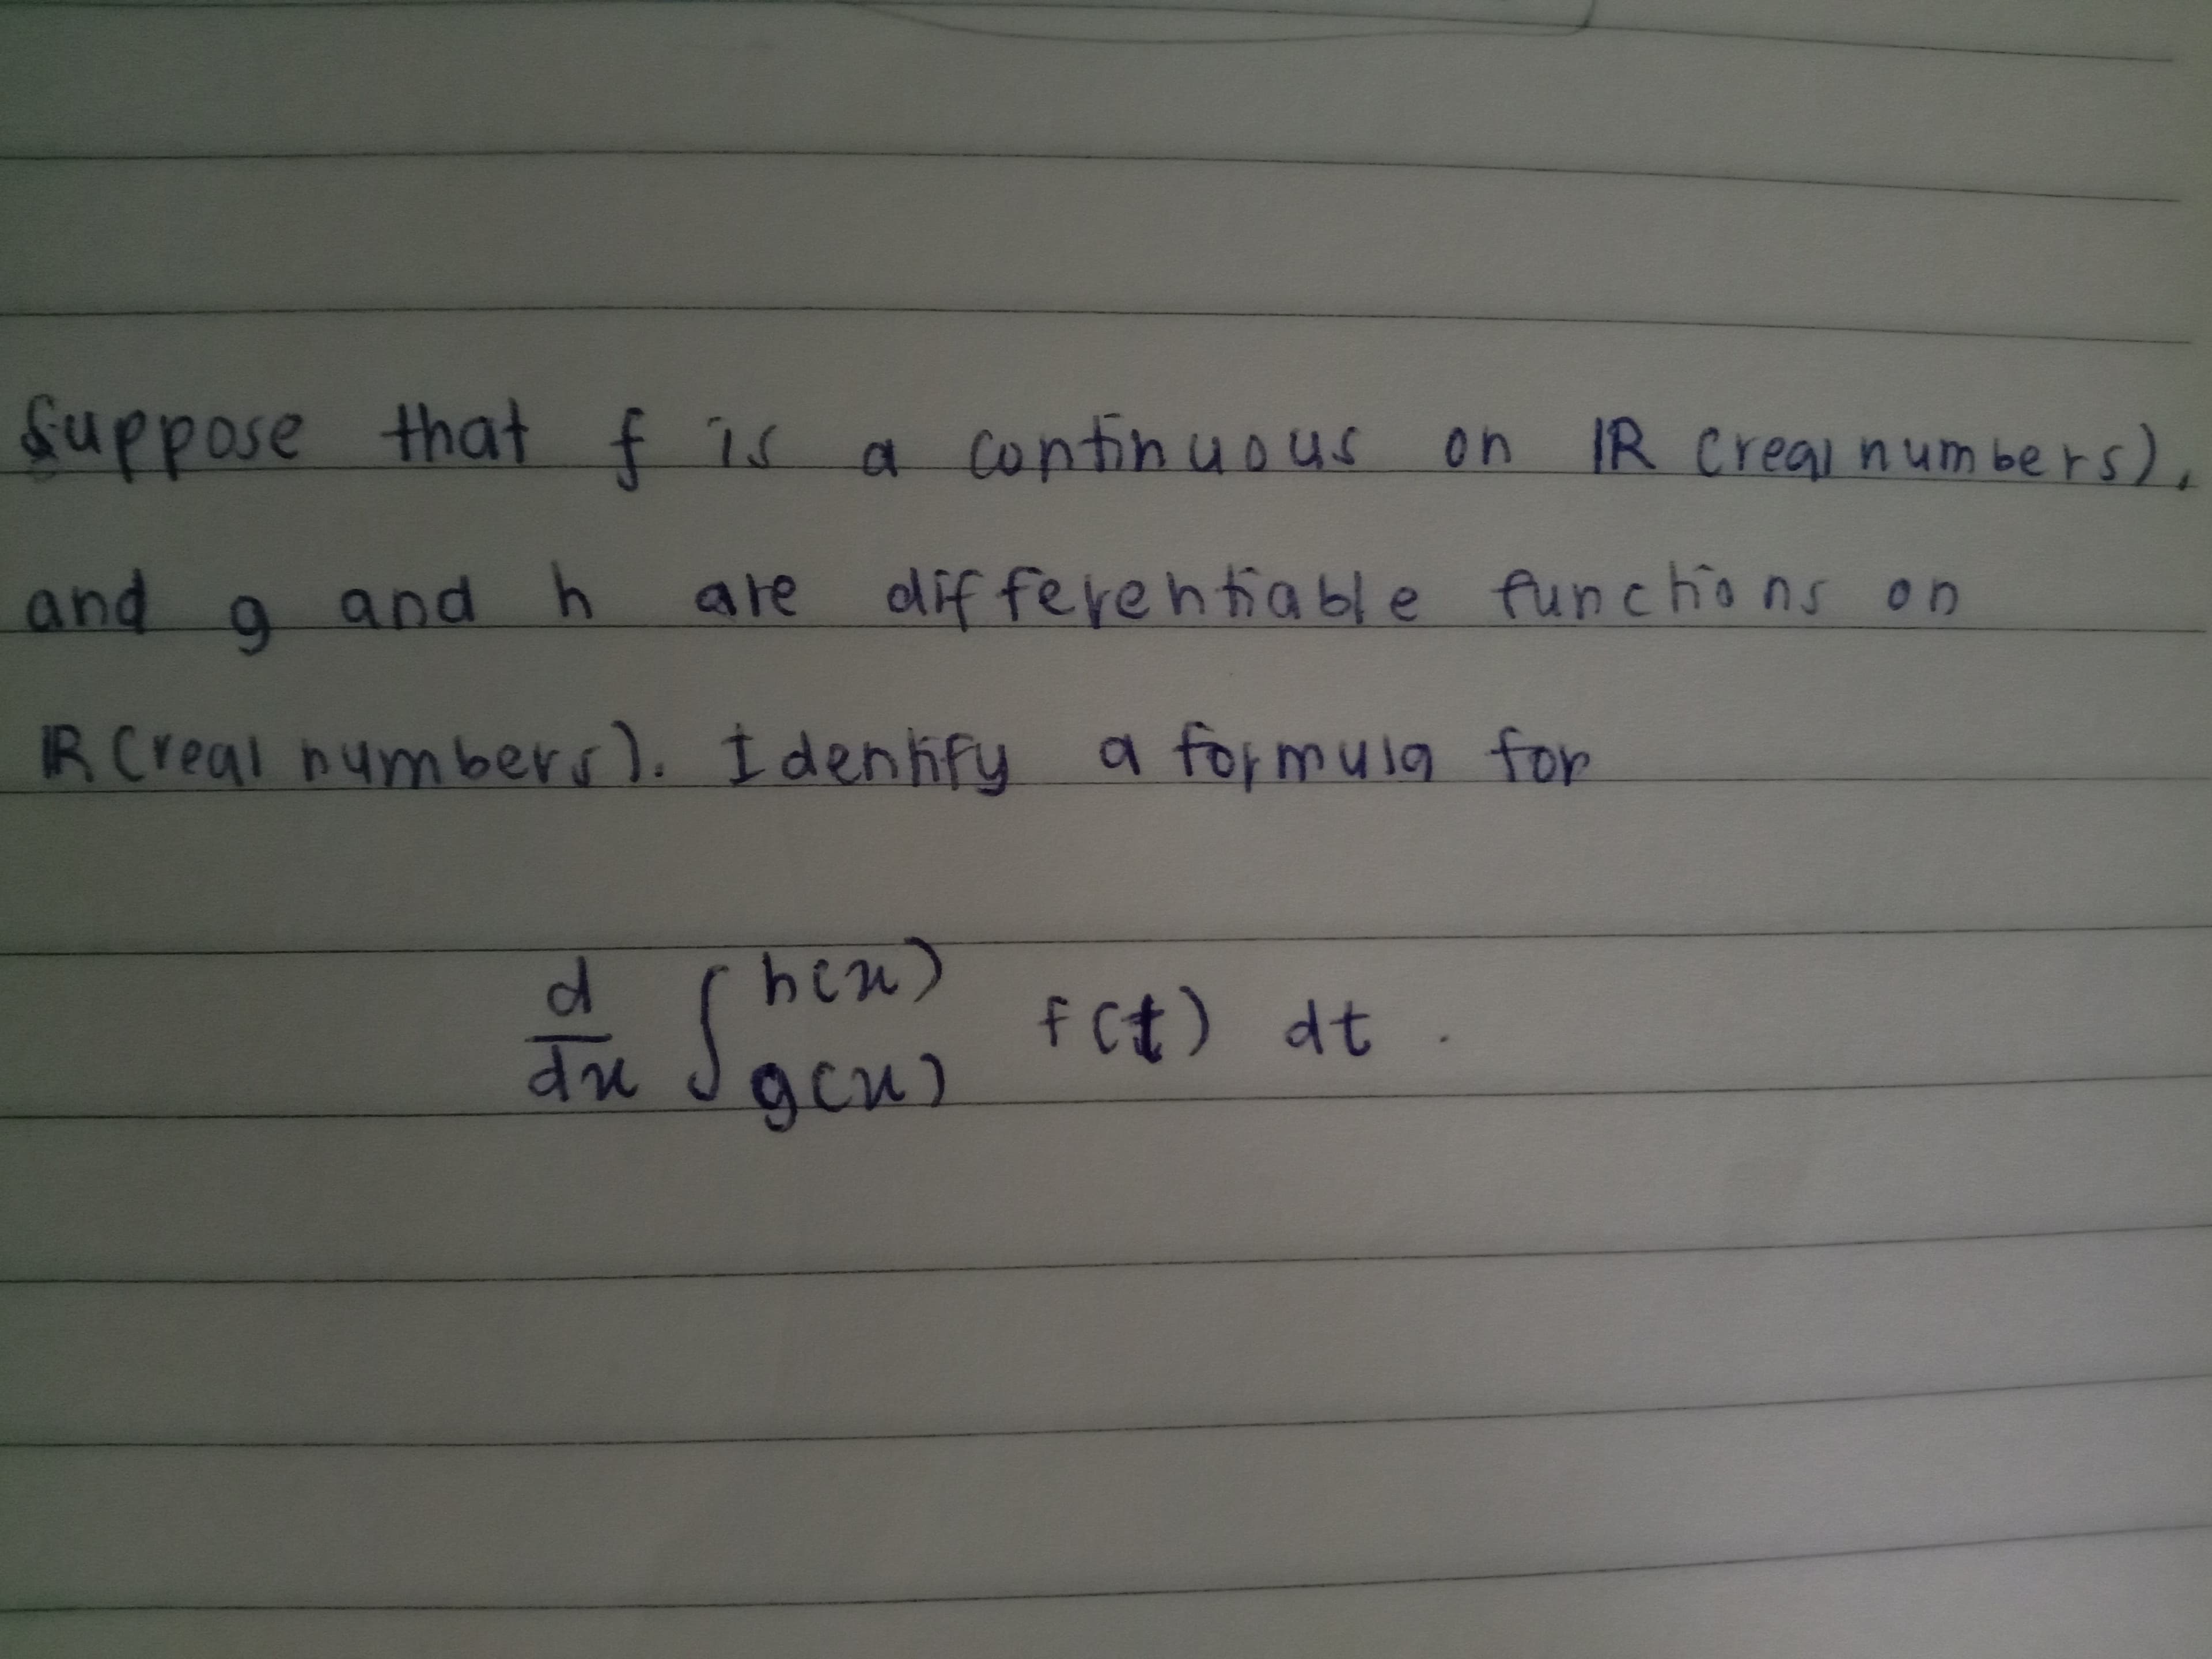 Suppose that f is a continuous on ℝ (real numbers),
and g and h are differentiable functions on
ℝ (real numbers). Identify a formula for
d/dx ∫_{g(x)}^{h(x)} f(t) dt.